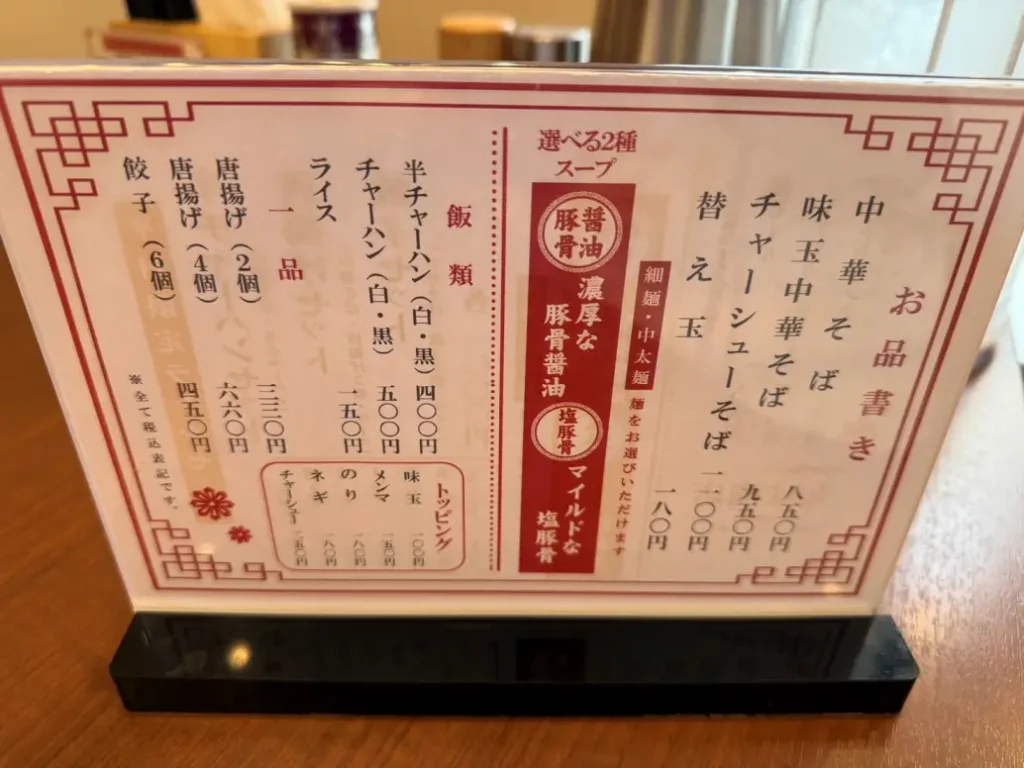 お品書き
中華そば 八五〇円
味玉中華そば 九五〇円
チャーシューそば 一一〇〇円
替え玉 一八〇円
細麺・中太麺 麺をお選びいただけます
選べる2種
スープ
醤油
豚骨
濃厚な
豚骨醤油
塩豚骨
マイルドな
塩豚骨
飯類
半チャーハン(白・黒) 四〇〇円
チャーハン(白・黒) 五〇〇円
ライス 一五〇円
一品
唐揚げ(2個) 三三〇円
唐揚げ(4個) 六六〇円
餃子(6個) 四五〇円
※全て税込表記です。
トッピング
味玉 一〇〇円
メンマ 一五〇円
のり 一八〇円
ネギ 一八〇円
チャーシュー 一五〇円